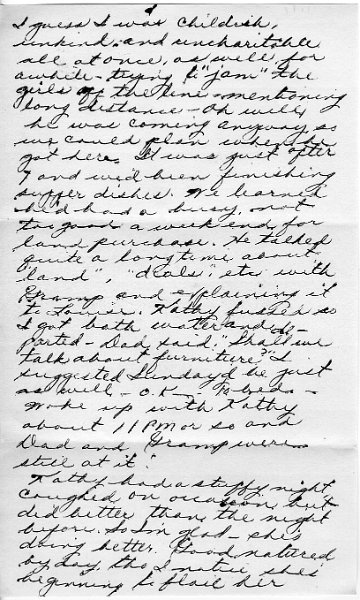 I guess I was childish,
unkind and uncharitable
all at once, as well, for
awhile - trying to "jam" the
girls off the line - mentioning
long distance - oh well,
he was coming anyway so
we could plan when he
got here. It was just after
7 and we'd been finishing
supper dishes. We learned
he'd had a busy, not
too good a week end for
land purchase. He talked
quite a long time about
"land", "deals", etc with
Gramp and explaining it
to Louise. Kathy fussed so
I got both water and de-
parted - Dad said "Shall we
talk about furniture?" I
suggested Sunday'd be just
as well - O.K. - To bed -
woke up with Kathy
about 11 PM or so and
Dad and Gramp were
still at it!
Kathy had a stuffy night
coughed on occasion, but
did better than the night
before. So I'm glad - she's
doing better. Good natured
by day, tho I notice she's
beginning to flail her